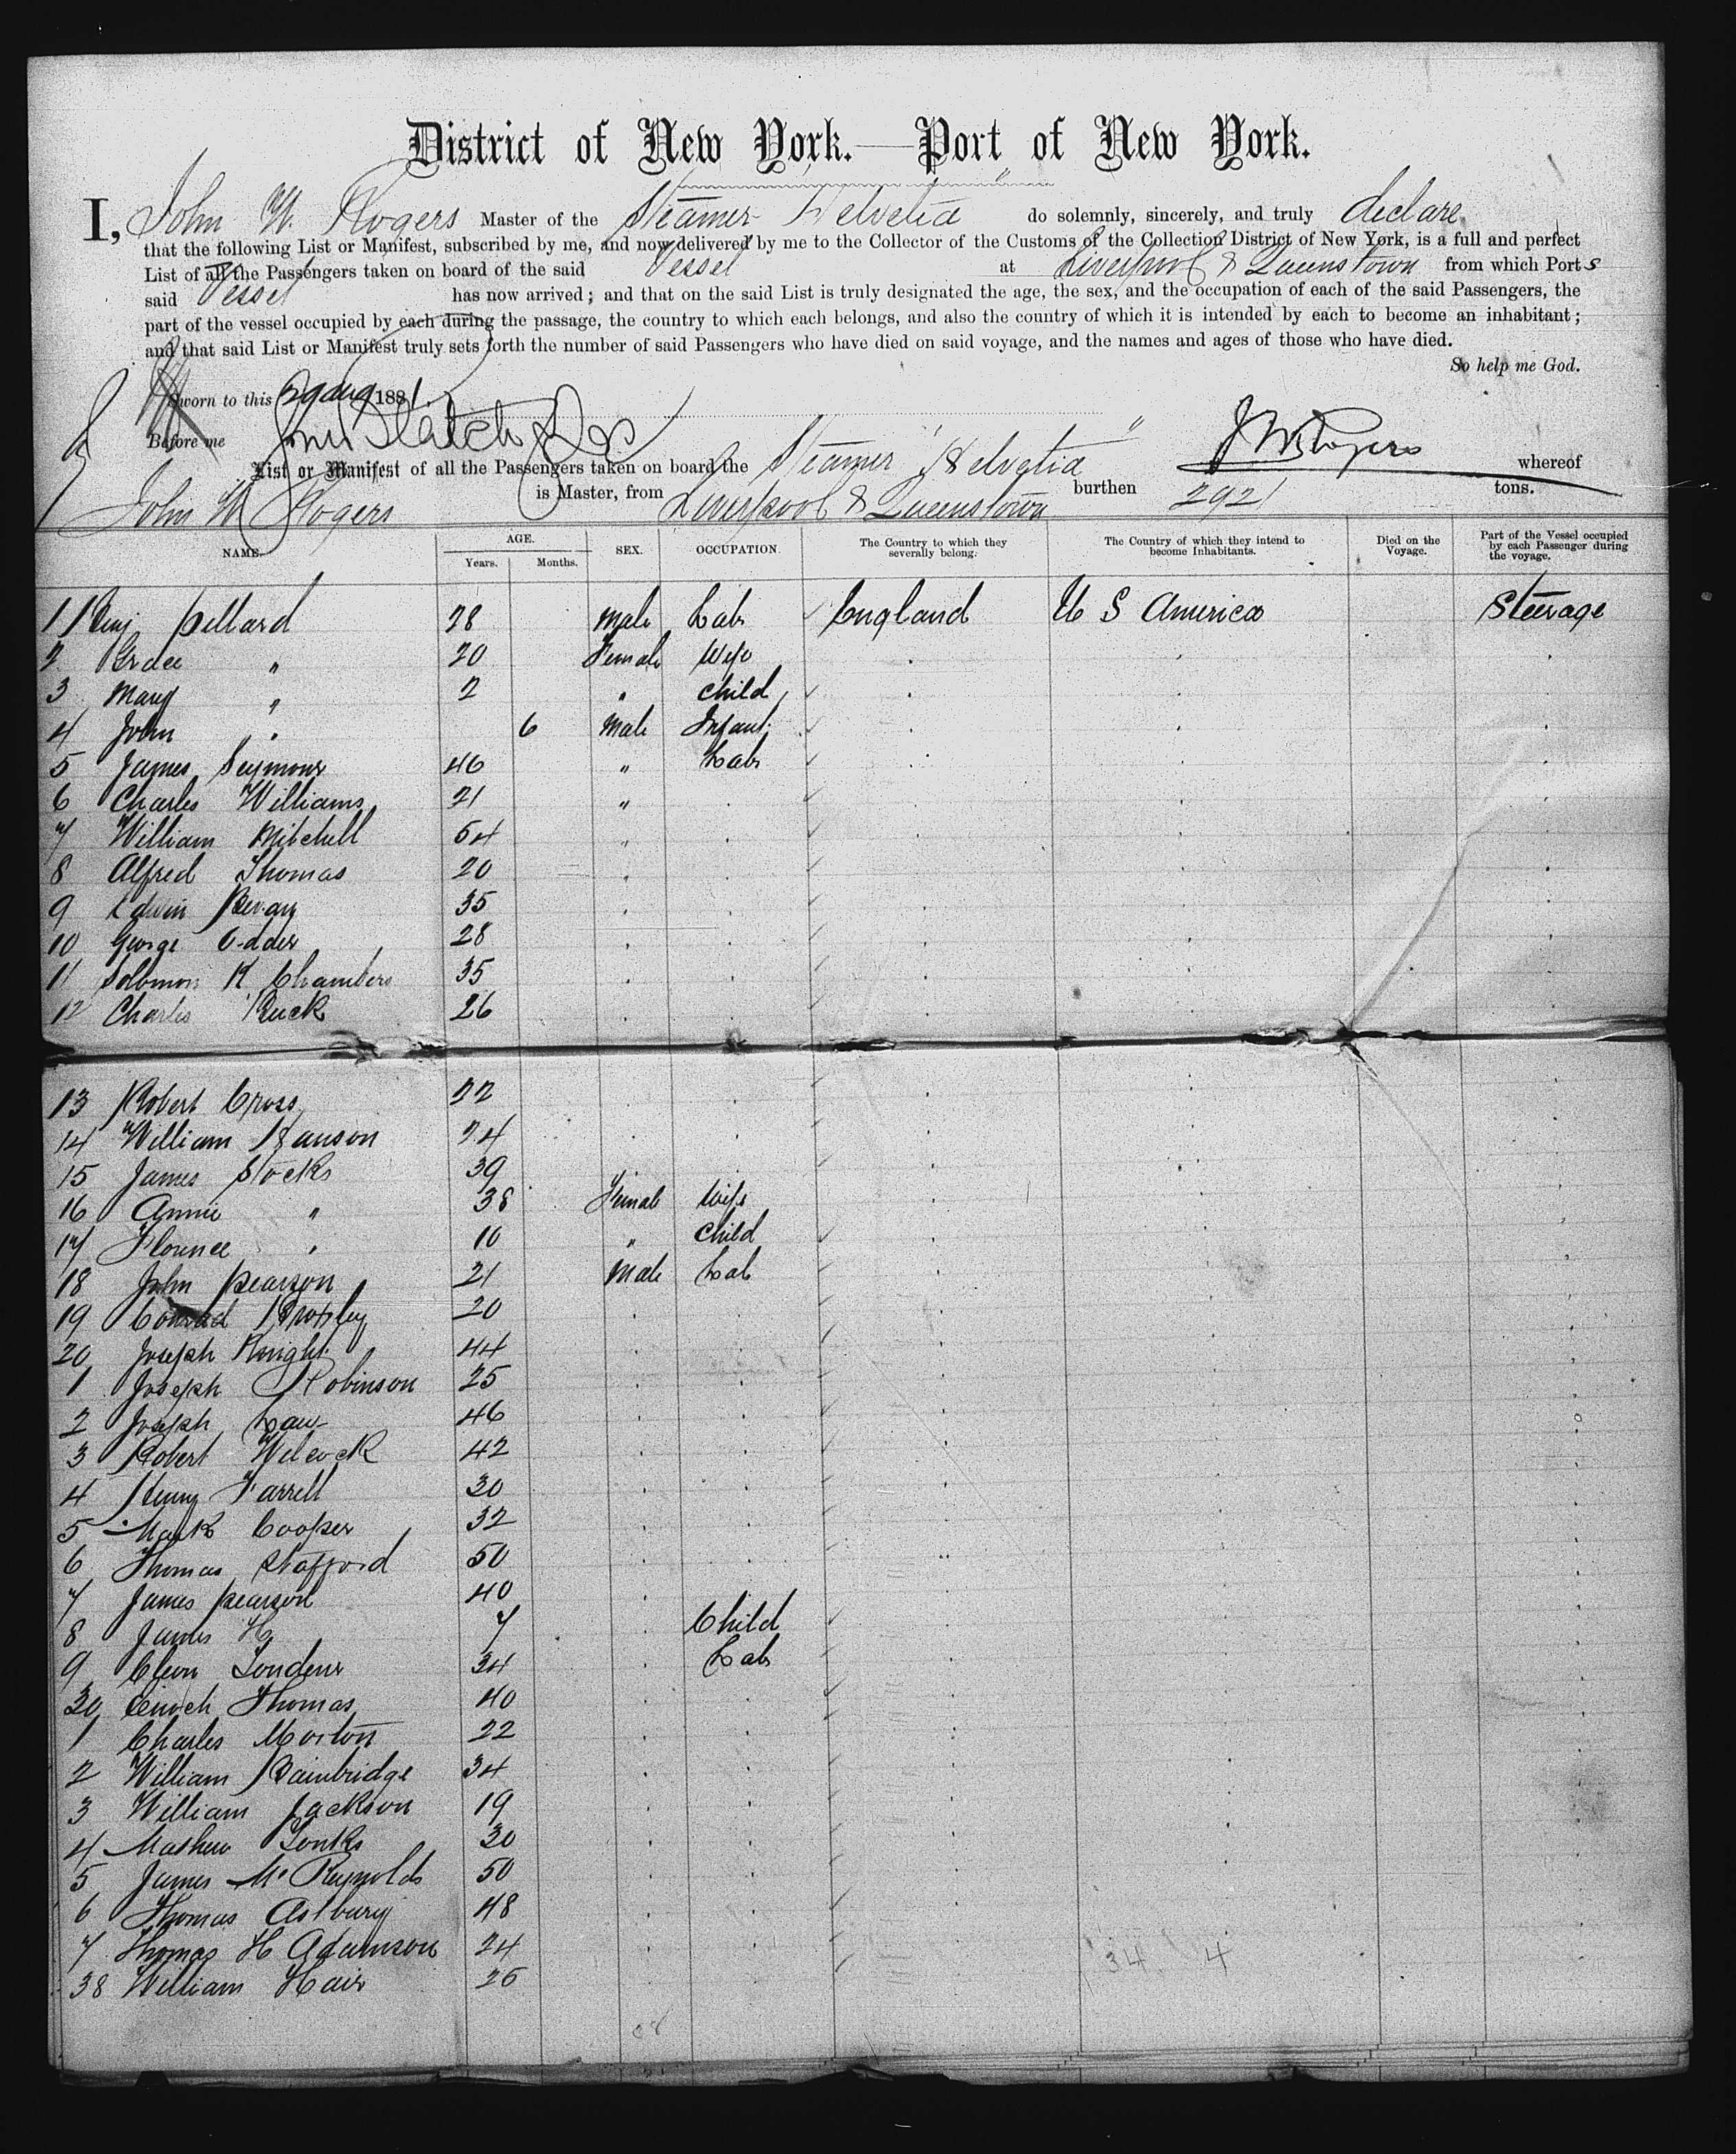 District of New York.—Port of New York.
I, John W. Rogers Master of the Steamer "Helvetia" do solemnly, sincerely, and truly declare
that the following List or Manifest, subscribed by me, and now delivered by me to the Collector of the Customs of the Collection District of New York, is a full and perfect
List of all the Passengers taken on board of the said Vessel at Liverpool & Queenstown from which Ports
said Vessel has now arrived; and that on the said List is truly designated the age, the sex, and the occupation of each of the said Passengers, the
part of the vessel occupied by each during the passage, the country to which each belongs, and also the country of which it is intended by each to become an inhabitant;
and that said List or Manifest truly sets forth the number of said Passengers who have died on said voyage, and the names and ages of those who have died.
So help me God.
Sworn to this 29 Aug 1881.
Before me
J W Rogers
List or Manifest of all the Passengers taken on board the Steamer "Helvetia" whereof
John W Rogers is Master, from Liverpool & Queenstown burthen 2921 tons.
NAME. AGE. Years. Months. SEX. OCCUPATION. The Country to which they severally belong. The Country of which they intend to become Inhabitants. Died on the Voyage. Part of the Vessel occupied by each Passenger during the voyage.
1 Benj Pellard 28 Male Labr England U S America Steerage
2 Grace " 20 Female Wife
3 Mary " 2 " Child
4 John " 6 Male Infant
5 James Seymour 46 " Labr
6 Charles Williams 21 "
7 William Mitchell 54 "
8 Alfred Thomas 20
9 Edwin Bevan 35
10 George 28
11 Solomon K Chambers 35
12 Charles Buck 26
13 Robert Cross 22
14 William Hanson 24
15 James Stocks 39
16 Annie " 38 Female Wife
17 Florence " 10 " Child
18 John Pearson 21 Male Lab
19 Conrad 20
20 Joseph Knight 44
1 Joseph Robinson 25
2 Joseph Law 46
3 Robert Welcock 42
4 Henry Farrell 30
5 Mark Cooper 32
6 Thomas Stafford 50
7 James Pearson 40
8 James H 7 Child
9 34 Labr
30 Enoch Thomas 40
1 Charles Morton 22
2 William Bainbridge 34
3 William Jackson 19
4 Mathew Tonks 30
5 James Mc Reynolds 50
6 Thomas Astbury 48
7 Thomas H Adamson 24
38 William Hair 26
34 4